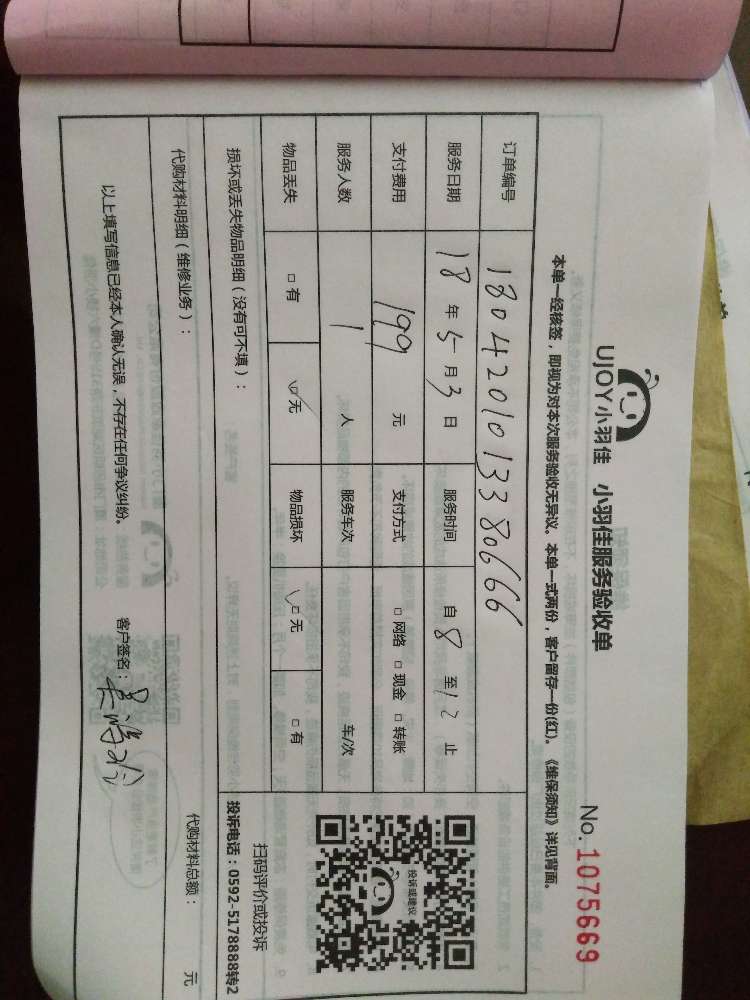 UJOY小羽佳 小羽佳服务验收单
No. 1075669
本单一经核签，即视为对本次服务验收无异议。本单一式两份，客户留存一份(红)。《维保须知》详见背面。
订单编号 1804201013380666
服务日期 18年5月3日 服务时间 自8至12止
支付费用 199元 支付方式 □网络 □现金 □转账
服务人数 1人 服务车次 车/次
物品丢失 □有 ☑无 物品损坏 ☑无 □有
投诉或建议
扫码评价或投诉
投诉电话：0592-5178888转2
损坏或丢失物品明细（没有可不填）：
代购材料明细（维修业务）： 代购材料总额： 元
以上填写信息已经本人确认无误，不存在任何争议纠纷。 客户签名：